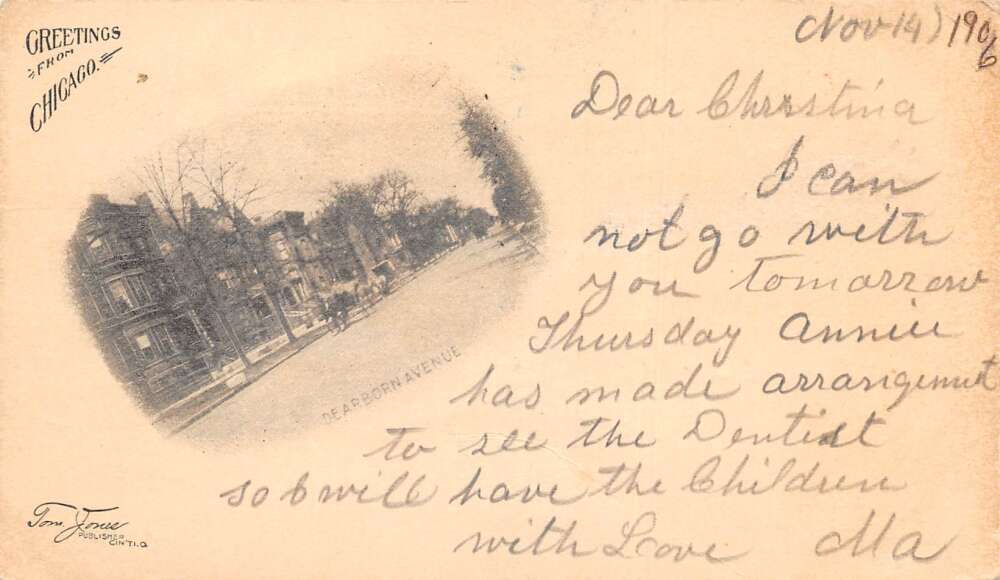 GREETINGS
FROM
CHICAGO.
Nov 14) 1906
Dear Christina
I can
not go with
you tomorrow
Thursday Annie
has made arrangement
to see the Dentist
so I will have the Children
with Love Ma
DEARBORN AVENUE
Tom. Jones
PUBLISHER
CIN'TI.O.